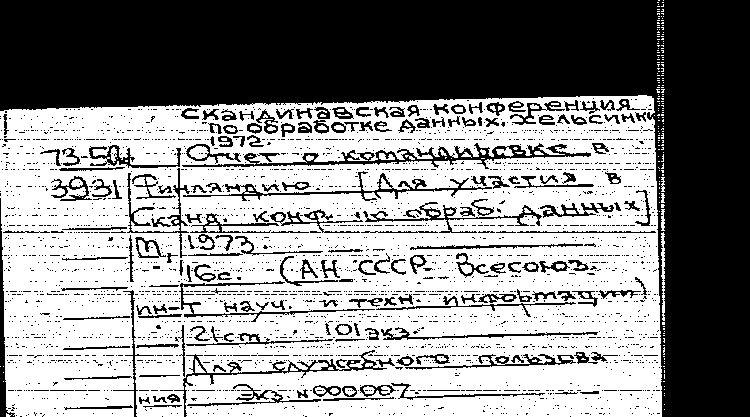 Скандинавская конференция
по обработке данных. Хельсинки
1972.
73-50д Отчет о командировке в
3931 Финляндию [Для участия в
Сканд. конф. по обраб. данных]
М, 1973.
16с. (АН СССР. Всесоюз.
ин-т науч. и техн. информации)
21см. 101экз.
Для служебного пользова
ния. Экз. №000007.